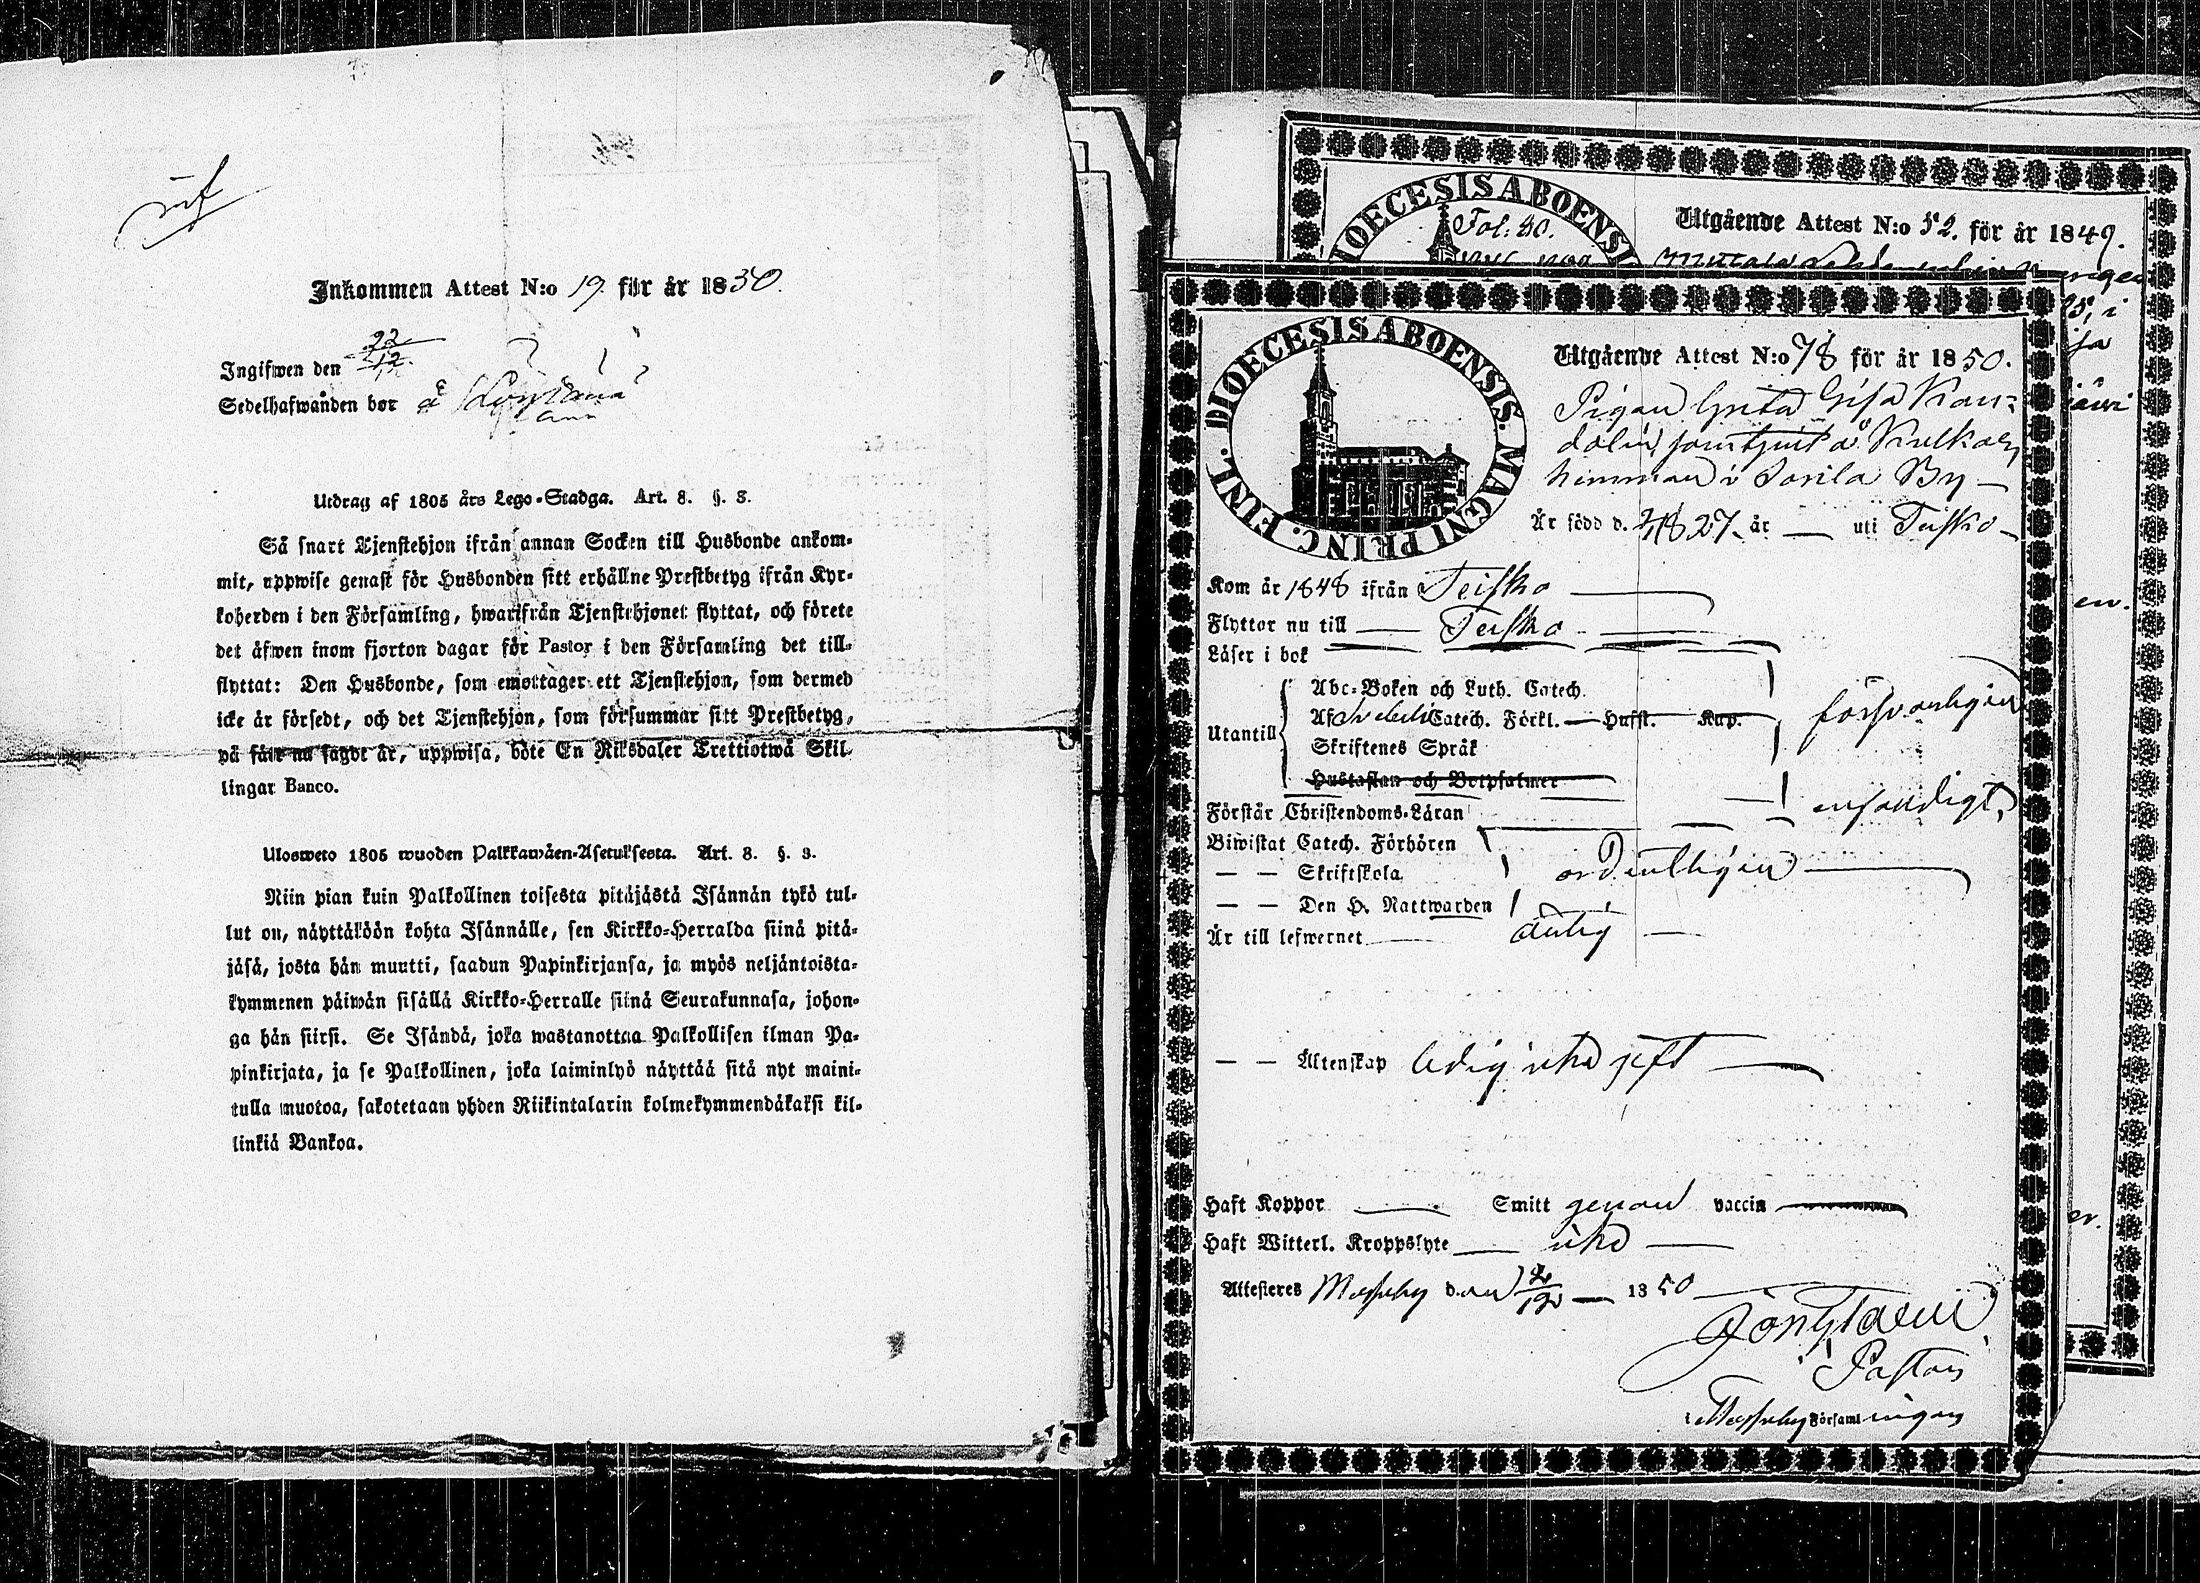 Inkommen Attest N:o 19. för år 1850.
Ingifwen den 22/12
Sedelhafwanden bor å
Utdrag af 1805 års Lego-Stadga. Art. 8. §. 3.
Så snart Tjenstehjon ifrån annan Socken till Husbonde ankom-
mit, uppwise genast för Husbonden sitt erhållne Prestbetyg ifrån Kyr-
koherden i den Församling, hwarifrån Tjenstehjonet flyttat, och förete
det äfwen inom fjorton dagar för Pastor i den Församling det till-
flyttat: Den Husbonde, som emottager ett Tjenstehjon, som dermed
icke är försedt, och det Tjenstehjon, som försummar sitt Prestbetyg,
på sätt nu sagdt är, uppwisa, böte En Riksdaler Trettiotwå Skil-
lingar Banco.
Ulosweto 1805 wuoden Palkkawäen-Asetuksesta. Art. 8. §. 3.
Niin pian kuin Palkollinen toisesta pitäjästä Isännän tykö tul-
lut on, näyttäköön kohta Isännälle, sen Kirkko-Herralda siinä pitä-
jäsä, josta hän muutti, saadun Papinkirjansa, ja myös neljäntoista-
kymmenen päiwän sisällä Kirkko-Herralle siinä Seurakunnasa, johon-
ga hän siirsi. Se Isändä, joka wastanottaa Palkollisen ilman Pa-
pinkirjata, ja se Palkollinen, joka laiminlyö näyttää sitä nyt maini-
tulla muotoa, sakotetaan yhden Riikintalarin kolmekymmendäkaksi kil-
linkiä Bankoa.
DIOECESIS ABOENSI
Fol: 30.
Utgående Attest N:o 52. för år 1849.
DIOECESIS ABOENSIS. MAGNI PRINC. FINL.
Utgående Attest N:o 78 för år 1850.
Pigan Greta Lisa Kan-
dolin, som tjent å
hemman i Sorila By
Är född d. 1827. år uti Teisko
Kom år 1848 ifrån Teisko
Flyttar nu till Teisko
Läser i bok
Utantill
Abc-Boken och Luth. Catech.
Af Svebelii Catech. Förkl. Hufst. Kap.
försvarligen
Skriftenes Språk
Hustaflan och Botpsalmer
Förstår Christendoms-Läran enfaldigt
Biwistat Catech. Förhören
— — Skriftskola ordentligen
— — Den H. Nattwarden
Är till lefwernet ärlig
— — Äktenskap ledig icke gift
Haft Koppor Smitt genom vaccin
Haft Witterl. Kroppslyte icke
Attesteres Messuby den 1850
Pastor
i Messuby Församlingen